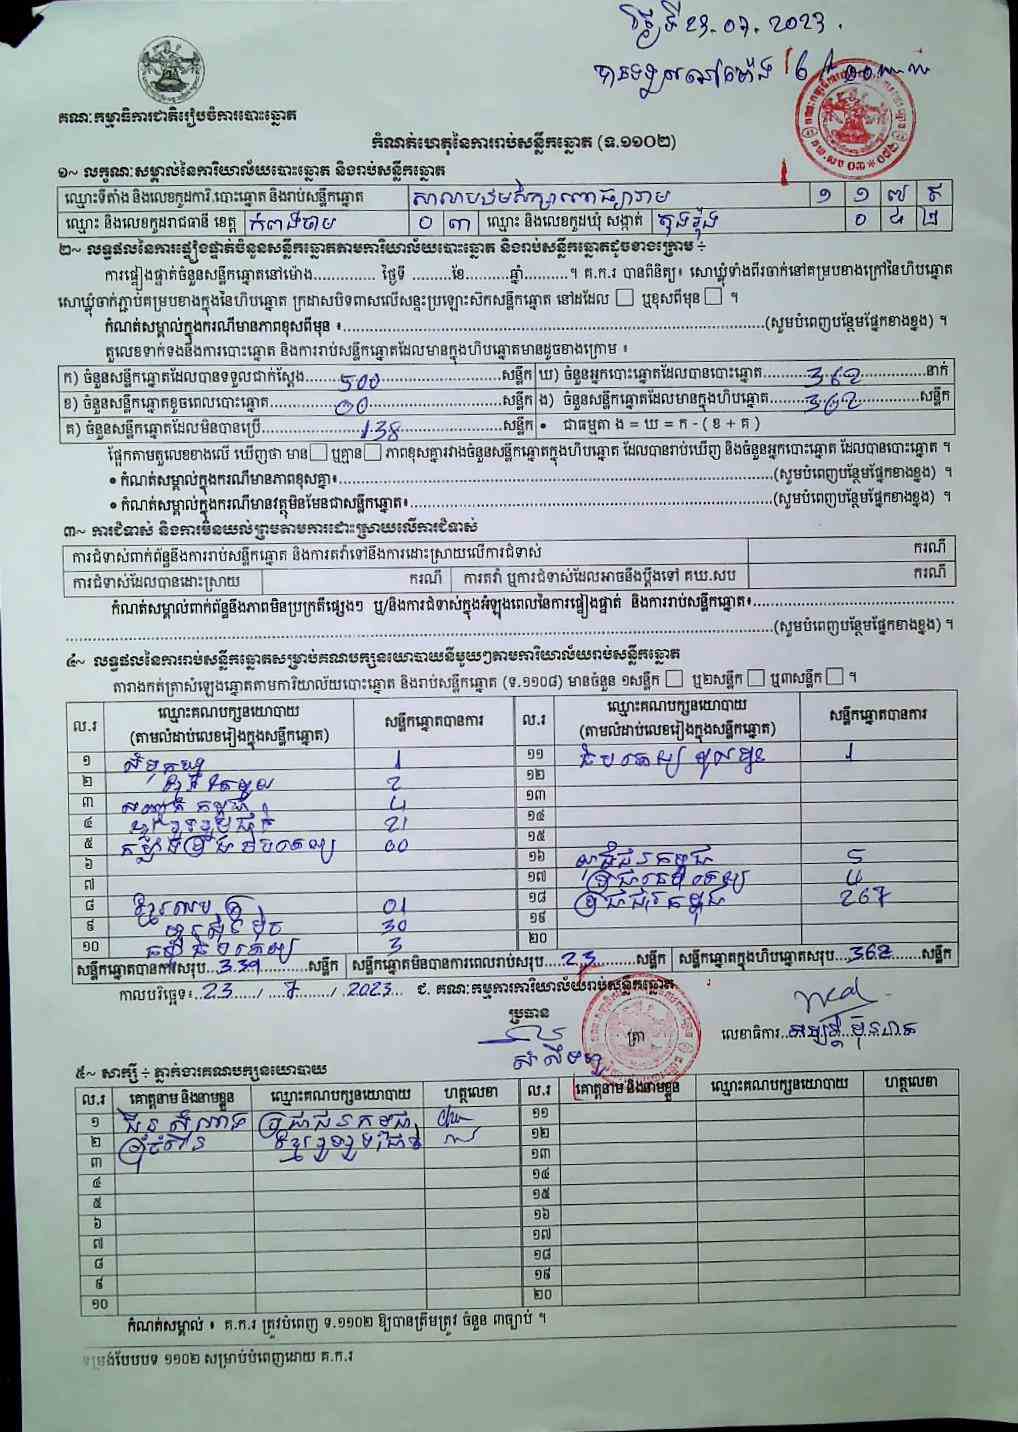 ថ្ងៃទី 23.07.2023
គណៈកម្មាធិការជាតិរៀបចំការបោះឆ្នោត
កំណត់ហេតុនៃការរាប់សន្លឹកឆ្នោត (ទ.១១០២)
១~ លក្ខណៈសម្គាល់នៃការិយាល័យបោះឆ្នោត និងរាប់សន្លឹកឆ្នោត
ឈ្មោះទីតាំង និងលេខកូដការិ.បោះឆ្នោត និងរាប់សន្លឹកឆ្នោត ១ ១ ៧ ៩
ឈ្មោះ និងលេខកូដរាជធានី ខេត្ត កំពង់ចាម ០ ៣ ឈ្មោះ និងលេខកូដឃុំ សង្កាត់ ០ ៤ ២
២~ លទ្ធផលនៃការផ្ទៀងផ្ទាត់ចំនួនសន្លឹកឆ្នោតតាមការិយាល័យបោះឆ្នោត និងរាប់សន្លឹកឆ្នោតដូចខាងក្រោម ÷
ការផ្ទៀងផ្ទាត់ចំនួនសន្លឹកឆ្នោតនៅម៉ោង............. ថ្ងៃទី .........ខែ..........ឆ្នាំ..........។ គ.ក.រ បានពិនិត្យ៖ សោឃ្លុំទាំងពីរចាក់នៅគម្របខាងក្រៅនៃហិបឆ្នោត
សោឃ្លុំចាក់ភ្ជាប់គម្របខាងក្នុងនៃហិបឆ្នោត ក្រដាសបិទពាសលើសន្ទះប្រឡោះសឹកសន្លឹកឆ្នោត នៅដដែល ☐ ឬខុសពីមុន ☐ ។
កំណត់សម្គាល់ក្នុងករណីមានភាពខុសពីមុន ៖..............(សូមបំពេញបន្ថែមផ្នែកខាងខ្នង) ។
តួលេខទាក់ទងនឹងការបោះឆ្នោត និងការរាប់សន្លឹកឆ្នោតដែលមានក្នុងហិបឆ្នោតមានដូចខាងក្រោម ៖
ក) ចំនួនសន្លឹកឆ្នោតដែលបានទទួលជាក់ស្តែង......500......សន្លឹក ឃ) ចំនួនអ្នកបោះឆ្នោតដែលបានបោះឆ្នោត......362......នាក់
ខ) ចំនួនសន្លឹកឆ្នោតខូចពេលបោះឆ្នោត......00......សន្លឹក ង) ចំនួនសន្លឹកឆ្នោតដែលមានក្នុងហិបឆ្នោត......362......សន្លឹក
គ) ចំនួនសន្លឹកឆ្នោតដែលមិនបានប្រើ......138......សន្លឹក • ជាធម្មតា ង = ឃ = ក - ( ខ + គ )
ផ្អែកតាមតួលេខខាងលើ ឃើញថា មាន ☐ ឬគ្មាន ☐ ភាពខុសគ្នារវាងចំនួនសន្លឹកឆ្នោតក្នុងហិបឆ្នោត ដែលបានរាប់ឃើញ និងចំនួនអ្នកបោះឆ្នោត ដែលបានបោះឆ្នោត ។
• កំណត់សម្គាល់ក្នុងករណីមានភាពខុសគ្នា៖..............(សូមបំពេញបន្ថែមផ្នែកខាងខ្នង) ។
• កំណត់សម្គាល់ក្នុងករណីមានវត្ថុមិនមែនជាសន្លឹកឆ្នោត៖..............(សូមបំពេញបន្ថែមផ្នែកខាងខ្នង) ។
៣~ ការជំទាស់ និងការមិនយល់ព្រមតាមការដោះស្រាយលើការជំទាស់
ការជំទាស់ពាក់ព័ន្ធនឹងការរាប់សន្លឹកឆ្នោត និងការតវ៉ាទៅនឹងការដោះស្រាយលើការជំទាស់ ករណី
ការជំទាស់ដែលបានដោះស្រាយ ករណី ការតវ៉ា ឬការជំទាស់ដែលអាចនឹងប្តឹងទៅ គឃ.សប ករណី
កំណត់សម្គាល់ពាក់ព័ន្ធនឹងភាពមិនប្រក្រតីផ្សេងៗ ឬ/និងការជំទាស់ក្នុងអំឡុងពេលនៃការផ្ទៀងផ្ទាត់ និងការរាប់សន្លឹកឆ្នោត៖..............
..............(សូមបំពេញបន្ថែមផ្នែកខាងខ្នង) ។
៤~ លទ្ធផលនៃការរាប់សន្លឹកឆ្នោតសម្រាប់គណបក្សនយោបាយនីមួយៗតាមការិយាល័យរាប់សន្លឹកឆ្នោត
តារាងកត់ត្រាសំឡេងឆ្នោតតាមការិយាល័យបោះឆ្នោត និងរាប់សន្លឹកឆ្នោត (ទ.១១០៨) មានចំនួន ១សន្លឹក ☐ ឬ២សន្លឹក ☐ ឬ៣សន្លឹក ☐ ។
ល.រ ឈ្មោះគណបក្សនយោបាយ (តាមលំដាប់លេខរៀងក្នុងសន្លឹកឆ្នោត) សន្លឹកឆ្នោតបានការ ល.រ ឈ្មោះគណបក្សនយោបាយ (តាមលំដាប់លេខរៀងក្នុងសន្លឹកឆ្នោត) សន្លឹកឆ្នោតបានការ
១ 1 ១១ 1
២ 2 ១២
៣ 4 ១៣
៤ 21 ១៤
៥ 00 ១៥
៦ ១៦ 5
៧ ១៧ 4
៨ 01 ១៨ ប្រជាជនកម្ពុជា 267
៩ 30 ១៩
១០ 3 ២០
សន្លឹកឆ្នោតបានការសរុប...339...សន្លឹក សន្លឹកឆ្នោតមិនបានការពេលរាប់សរុប...23...សន្លឹក សន្លឹកឆ្នោតក្នុងហិបឆ្នោតសរុប...362...សន្លឹក
កាលបរិច្ឆេទ៖..23../..7../..2023.. ជ. គណៈកម្មការការិយាល័យរាប់សន្លឹកឆ្នោត
ប្រធាន ត្រា លេខាធិការ
៥~ សាក្សី ÷ ភ្នាក់ងារគណបក្សនយោបាយ
ល.រ គោត្តនាម និងនាមខ្លួន ឈ្មោះគណបក្សនយោបាយ ហត្ថលេខា ល.រ គោត្តនាម និងនាមខ្លួន ឈ្មោះគណបក្សនយោបាយ ហត្ថលេខា
១ ប្រជាជនកម្ពុជា ១១
២ ១២
៣ ១៣
៤ ១៤
៥ ១៥
៦ ១៦
៧ ១៧
៨ ១៨
៩ ១៩
១០ ២០
កំណត់សម្គាល់ ៖ គ.ក.រ ត្រូវបំពេញ ទ.១១០២ ឱ្យបានត្រឹមត្រូវ ចំនួន ៣ច្បាប់ ។
ទម្រង់បែបបទ ១១០២ សម្រាប់បំពេញដោយ គ.ក.រ